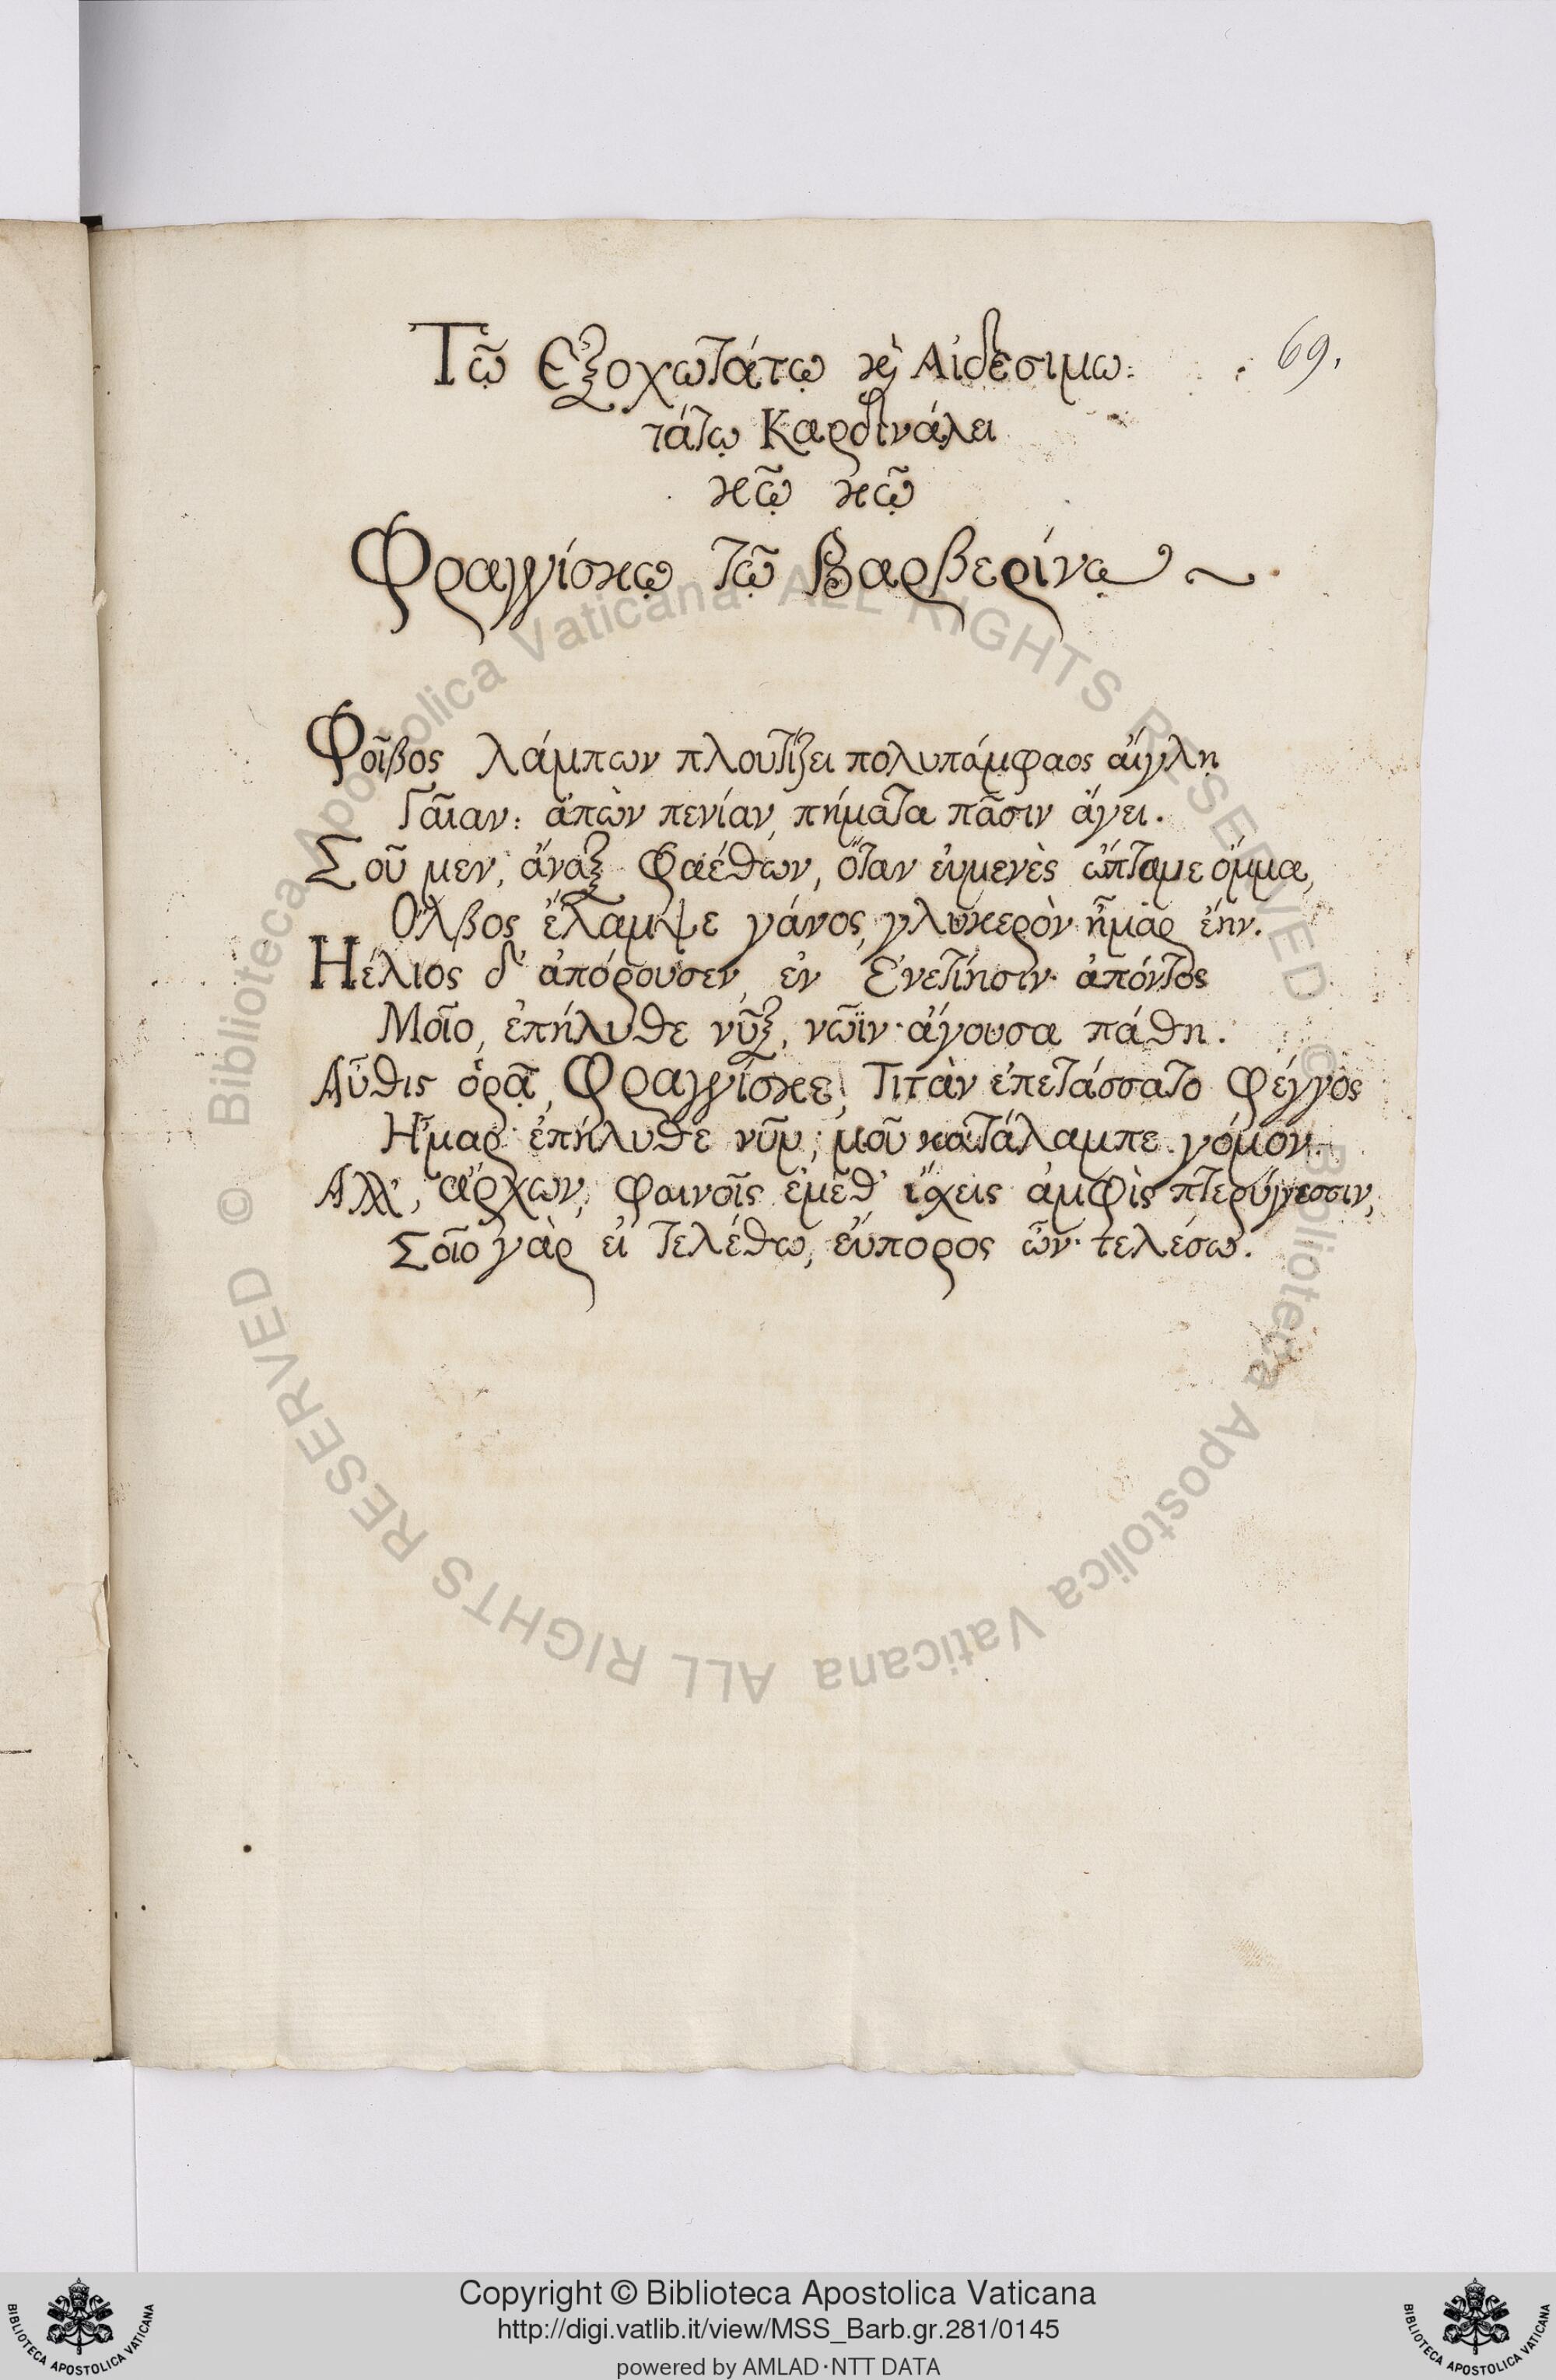 69.
Τῷ Ἐξοχωτάτῳ ϗ Αἰδεσιμω:
τάτῳ Καρδινάλει
κῷ κῷ
Φραγγίσκῳ τῷ Βαρβερίνῳ ~
Φοῖβος λάμπων πλουτίζει πολυπάμφαος αἴγλῃ
Γαῖαν: ἀπὼν πενίαν, πήματα πᾶσιν ἄγει.
Σοῦ μεν, ἄναξ Φαέθων, ὅταν εὐμενὲς ὤπταμε ὄμμα,
Ὄλβος ἔλαμψε γάνος, γλυκερὸν ἦμαρ ἔην.
Ἠέλιος δ' ἀπόρουσεν, ἐν Ἐνετίησιν· ἀπόντος
Μοῖο, ἐπήλυθε νῦξ, νῶϊν· ἄγουσα πάθη.
Αὖθις ὁρᾷ, Φραγγίσκε, Τιτὰν ἐπετάσσατο φέγγος
Ἦμαρ· ἐπήλυθε νῦν, μοῦ κατάλαμπε γόμον.
Ἀλλ', ἄρχων, φαινοῖς ἐμεῖθ' ἴσχεις ἀμφὶς πτερύγεσσιν,
Σοῖο γὰρ εἰ τελέθω, εὔπορος ὢν· τελέσω.
© Biblioteca Apostolica Vaticana ALL RIGHTS RESERVED © Biblioteca Apostolica Vaticana ALL RIGHTS RESERVED
Copyright © Biblioteca Apostolica Vaticana
http://digi.vatlib.it/view/MSS_Barb.gr.281/0145
powered by AMLAD·NTT DATA
BIBLIOTECA APOSTOLICA VATICANA
BIBLIOTECA APOSTOLICA VATICANA